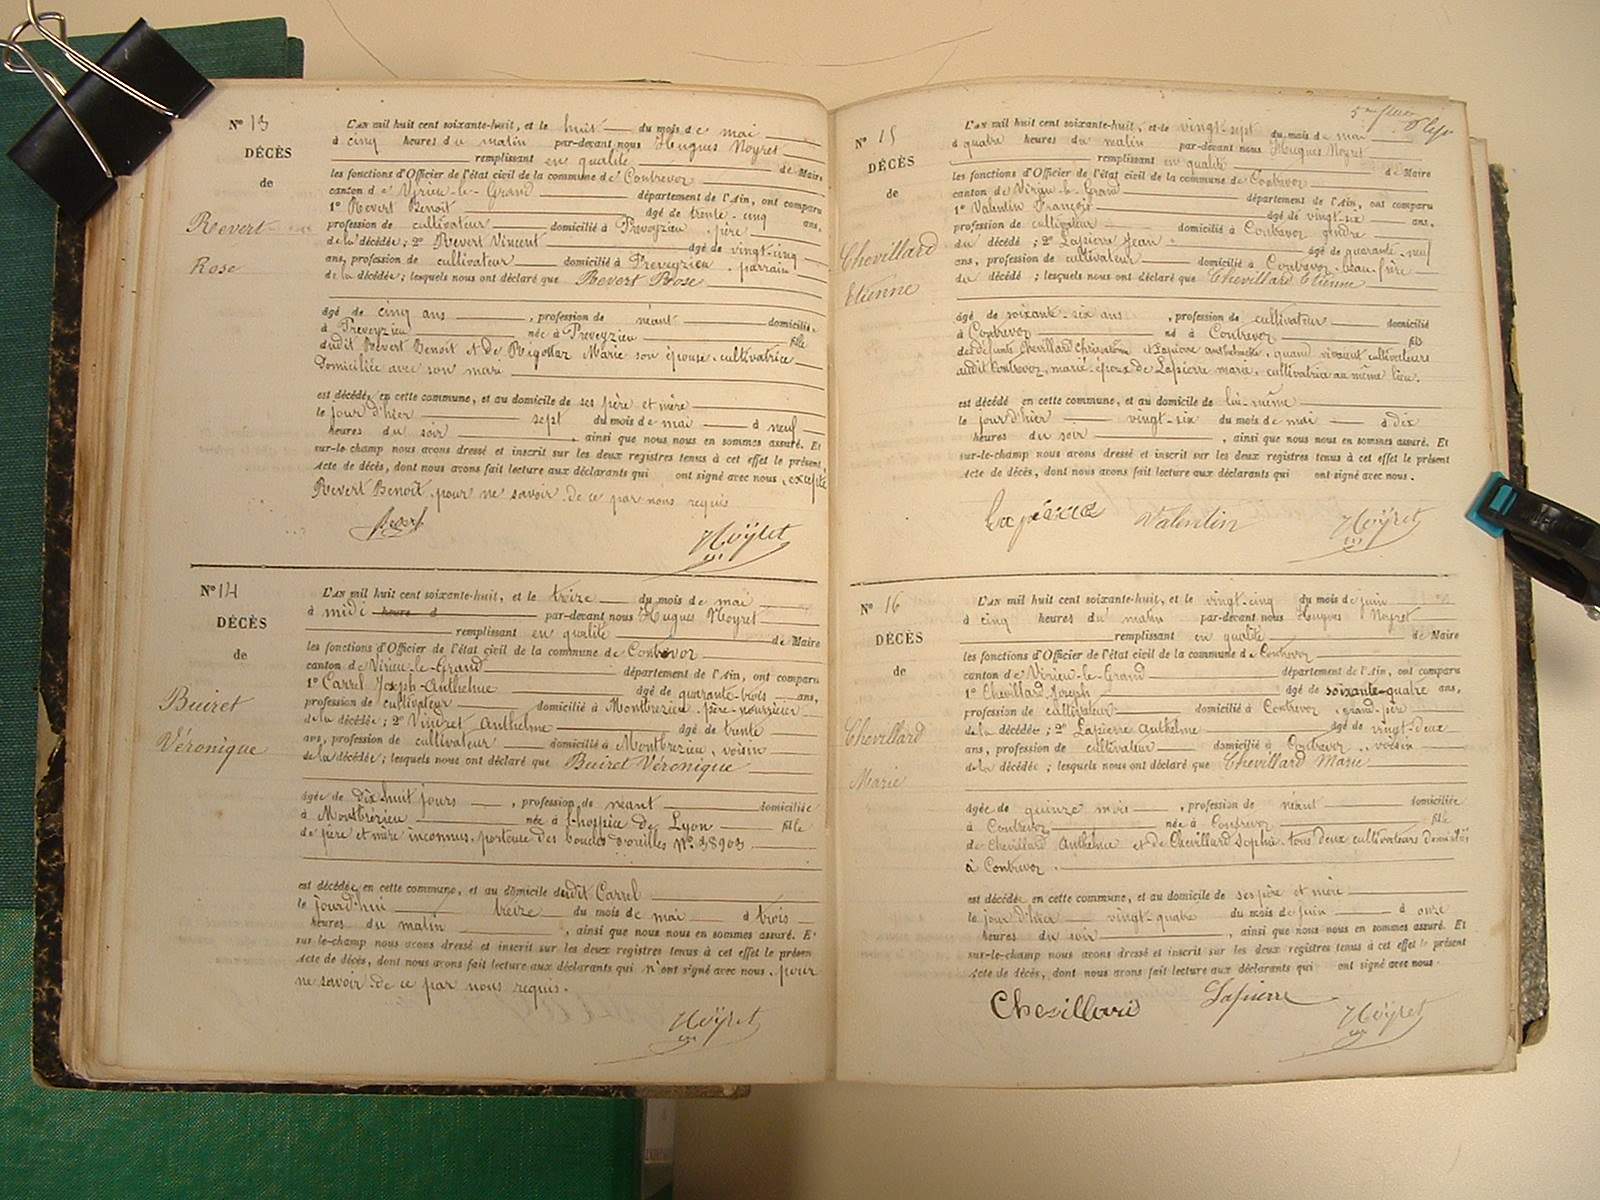 N° 13
DÉCÈS
de
Revert
Rose
L'AN mil huit cent soixante-huit, et le huit du mois de mai
à cinq heures du matin par-devant nous Hugues Noyret
remplissant en qualité de Maire
les fonctions d'Officier de l'état civil de la commune de Contrevoz
canton de Virieu-le-Grand département de l'Ain, ont comparu
1° Revert Benoit âgé de trente-cinq ans,
profession de cultivateur domicilié à Preveyzieu, père
de la décédée ; 2° Revert Vincent âgé de vingt-cinq
ans, profession de cultivateur domicilié à Preveyzieu, parrain
de la décédée ; lesquels nous ont déclaré que Revert Rose
âgé de cinq ans, profession de néant domicilié,
à Preveyzieu née à Preveyzieu fille
dudit Revert Benoit et de Rigottaz Marie son épouse, cultivatrice
Domiciliée avec son mari
est décédée en cette commune, et au domicile de ses père et mère
le jour d'hier sept du mois de mai à neuf
heures du soir, ainsi que nous nous en sommes assuré. Et
sur-le-champ nous avons dressé et inscrit sur les deux registres tenus à cet effet le présent
acte de décès, dont nous avons fait lecture aux déclarants qui ont signé avec nous, excepté
Revert Benoit, pour ne savoir de ce par nous requis
Revert Noÿret
N° 14
DÉCÈS
de
Buiret
Véronique
L'AN mil huit cent soixante-huit, et le treize du mois de mai
à midi heure d par-devant nous Hugues Noyret
remplissant en qualité de Maire
les fonctions d'Officier de l'état civil de la commune de Contrevoz
canton de Virieu-le-Grand département de l'Ain, ont comparu
1° Carrel Joseph-Anthelme âgé de quarante-trois ans,
profession de cultivateur domicilié à Montbrezieu, père-nourricier
de la décédée ; 2° Vincret Anthelme âgé de trente
ans, profession de cultivateur domicilié à Montbrezieu, voisin
de la décédée ; lesquels nous ont déclaré que Buiret Véronique
âgée de dix-huit jours, profession de néant domiciliée
à Montbrézieu née à l'hospice de Lyon fille
de père et mère inconnus, porteuse des boucles d'oreilles N° 38903
est décédée en cette commune, et au domicile dudit Carrel
le jourd'hui treize du mois de mai à trois
heures du matin, ainsi que nous nous en sommes assuré. Et
sur-le-champ nous avons dressé et inscrit sur les deux registres tenus à cet effet le présen
acte de décès, dont nous avons fait lecture aux déclarants qui n'ont signé avec nous, pour
ne savoir de ce par nous requis.
Noÿret
N° 15
DÉCÈS
de
Chevillard
Etienne
L'AN mil huit cent soixante-huit, et le vingt-sept du mois de mai
à quatre heures du matin par-devant nous Hugues Noyret
remplissant en qualité de Maire
les fonctions d'Officier de l'état civil de la commune de Contrevoz
canton de Virieu-le-Grand département de l'Ain, ont comparu
1° Valentin François âgé de vingt-six ans,
profession de cultivateur domicilié à Contrevoz gendre
du décédé ; 2° Lapierre Jean âgé de quarante-neuf
ans, profession de cultivateur domicilié à Contrevoz, beau-frère
du décédé ; lesquels nous ont déclaré que Chevillard Etienne
âgé de soixante-six ans, profession de cultivateur domicilié
à Contrevoz né à Contrevoz fils
des défunts Chevillard et Lapierre, quand vivaient cultivateurs
audit Contrevoz, marié époux de Lapierre marie, cultivatrice au même lieu.
est décédé en cette commune, et au domicile de lui-même
le jour d'hier vingt-six du mois de mai à dix
heures du soir, ainsi que nous nous en sommes assuré. Et
sur-le-champ nous avons dressé et inscrit sur les deux registres tenus à cet effet le présent
acte de décès, dont nous avons fait lecture aux déclarants qui ont signé avec nous.
Lapierre Valentin Noÿret
N° 16
DÉCÈS
de
Chevillard
Marie
L'AN mil huit cent soixante-huit, et le vingt-cinq du mois de juin
à cinq heures du matin par-devant nous Hugues Noyret
remplissant en qualité de Maire
les fonctions d'Officier de l'état civil de la commune de Contrevoz
canton de Virieu-le-Grand département de l'Ain, ont comparu
1° Chevillard Joseph âgé de soixante-quatre ans,
profession de cultivateur domicilié à Contrevoz, grand-père
de la décédée ; 2° Lapierre Anthelme âgé de vingt-deux
ans, profession de cultivateur domicilié à Contrevoz, voisin
de la décédée ; lesquels nous ont déclaré que Chevillard Marie
âgée de quinze mois, profession de néant domiciliée
à Contrevoz née à Contrevoz fille
de Chevillard Anthelme et de Chevillard Sophie, tous deux cultivateurs domiciliés
à Contrevoz.
est décédée en cette commune, et au domicile de ses père et mère
le jour d'hier vingt-quatre du mois de juin à onze
heures du soir, ainsi que nous nous en sommes assuré. Et
sur-le-champ nous avons dressé et inscrit sur les deux registres tenus à cet effet le présent
acte de décès, dont nous avons fait lecture aux déclarants qui ont signé avec nous.
Chevillard Lapierre Noÿret